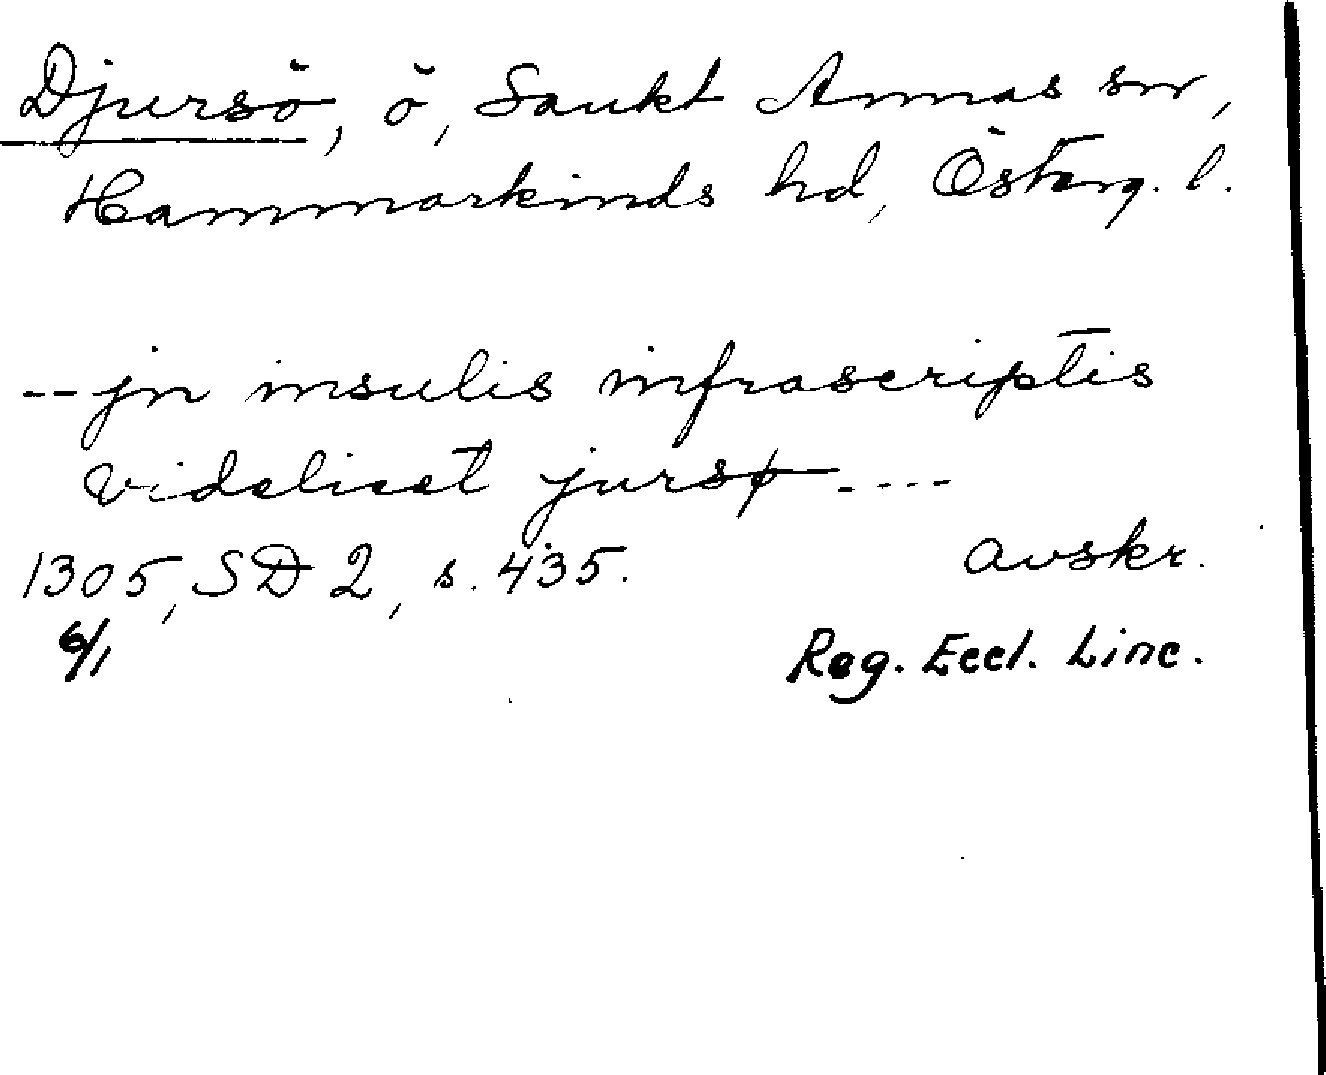 Djursö, ö, Sankt Annas sn,
Hammarkinds hd, Österg. l.
-- jn insulis infrascriptis
videlicet jursø ----
1305, SD 2, s. 435. avskr.
6/1 Reg. Eccl. Linc.